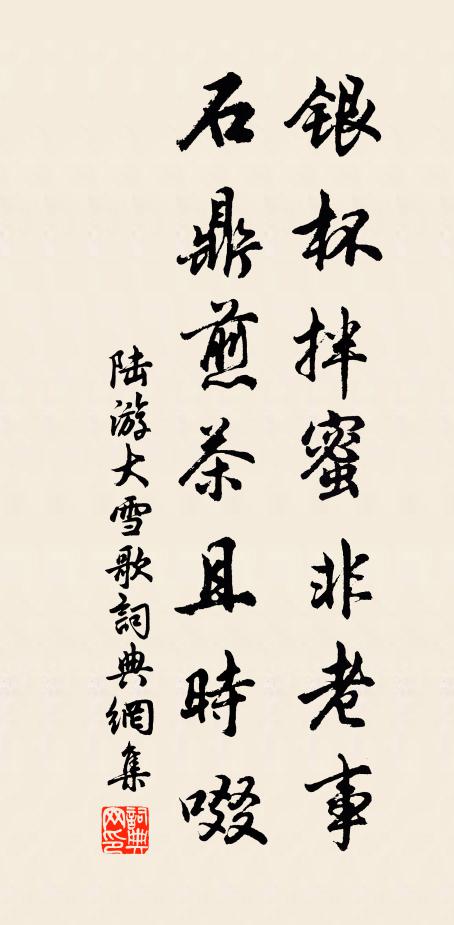 银杯拌蜜非老事
石鼎煎茶且時啜
陆游大雪歌詞典網集
詞典网印